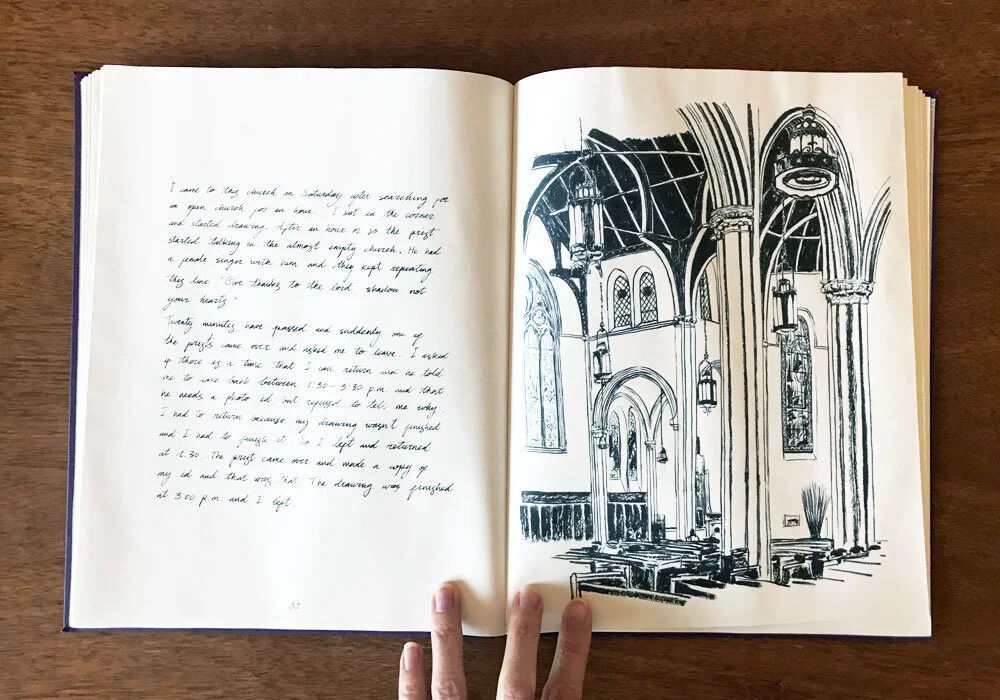 I came to this church on Saturday after searching for
an open church for an hour. I sat in the corner
and started drawing. After an hour or so the priest
started talking in the almost empty church. He had
a female singer with him and they kept repeating
this line "Give thanks to the lord shadow not
your hearts"
Twenty minutes have passed and suddenly one of
the priests came over and asked me to leave. I asked
if there is a time that I can return and he told
me to come back between 1.30-3.30 p.m. and that
he needs a photo id but refused to tell me why.
I had to return because my drawing wasn't finished
and I had to finish it. So I left and returned
at 1.30. The priest came over and made a copy of
my id and that was that. The drawing was finished
at 3:00 p.m. and I left.